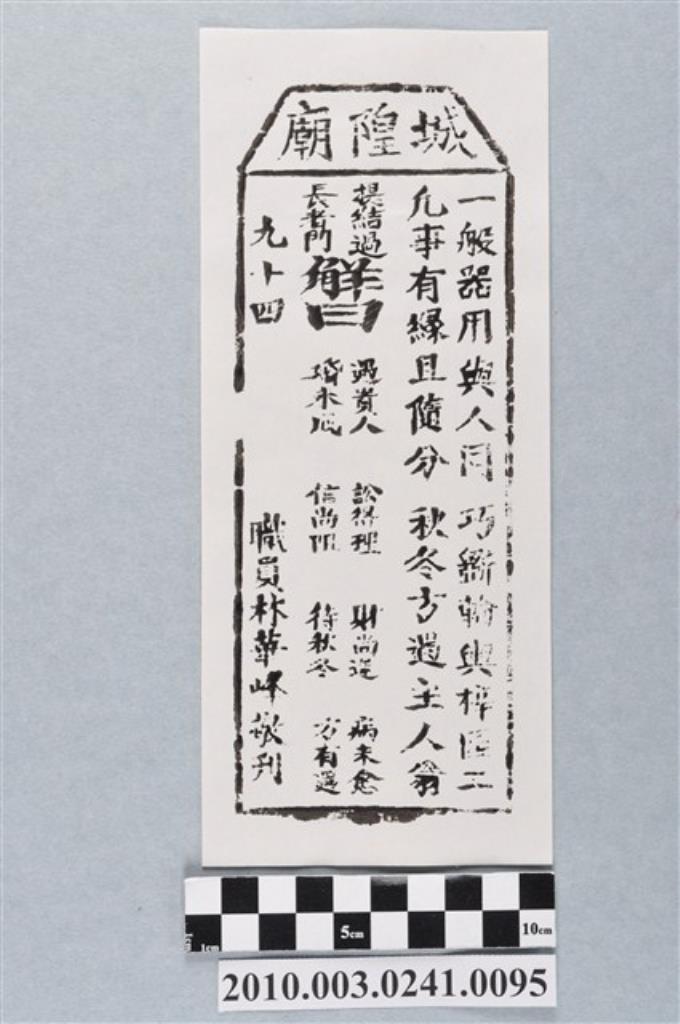 城隍廟
一般器用與人同 巧斵輪輿梓匠工
凡事有緣且隨分 秋冬方遇主人翁
提結過 遇貴人 訟得理 財尚遲 病未愈
長者門 婚未成 信尚阻 待秋冬 方有遇
九十四 職員林華峰敬刊
5cm
10cm
1cm
2010.003.0241.0095